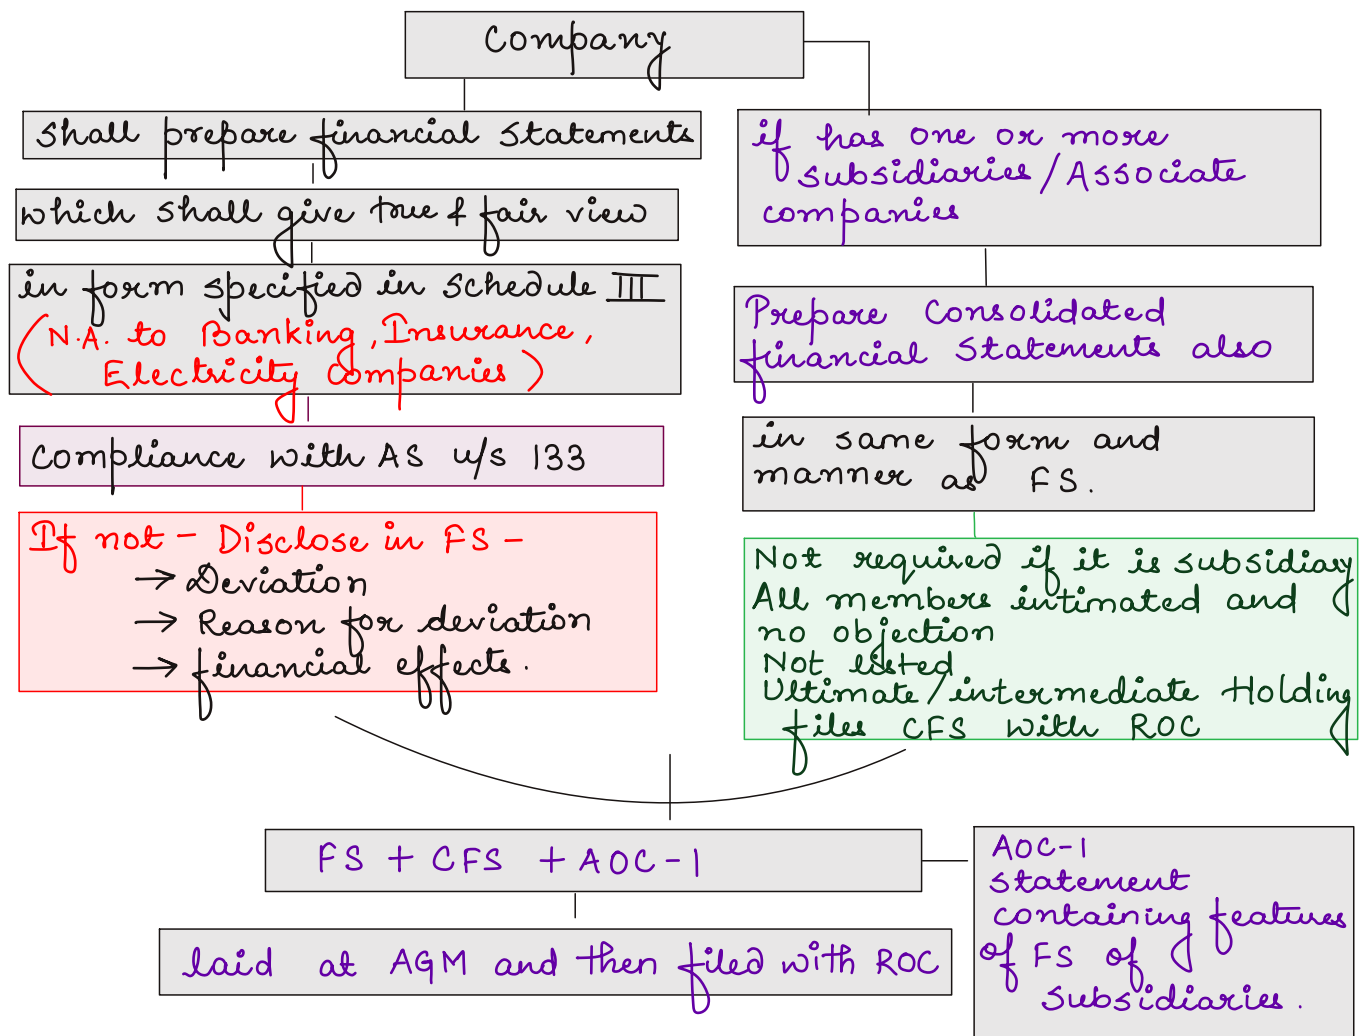 Company
shall prepare financial statements
which shall give true & fair view
in form specified in schedule III
(N.A. to Banking, Insurance,
Electricity companies)
Compliance with AS u/s 133
If not - Disclose in FS -
→ Deviation
→ Reason for deviation
→ financial effects.
if has one or more
subsidiaries/Associate
companies
Prepare Consolidated
financial Statements also
in same form and
manner as FS.
Not required if it is subsidiary
All members intimated and
no objection
Not listed
Ultimate/intermediate Holding
files CFS with ROC
FS + CFS + AOC-1
AOC-1
statement
containing features
of FS of
Subsidiaries.
laid at AGM and then filed with ROC